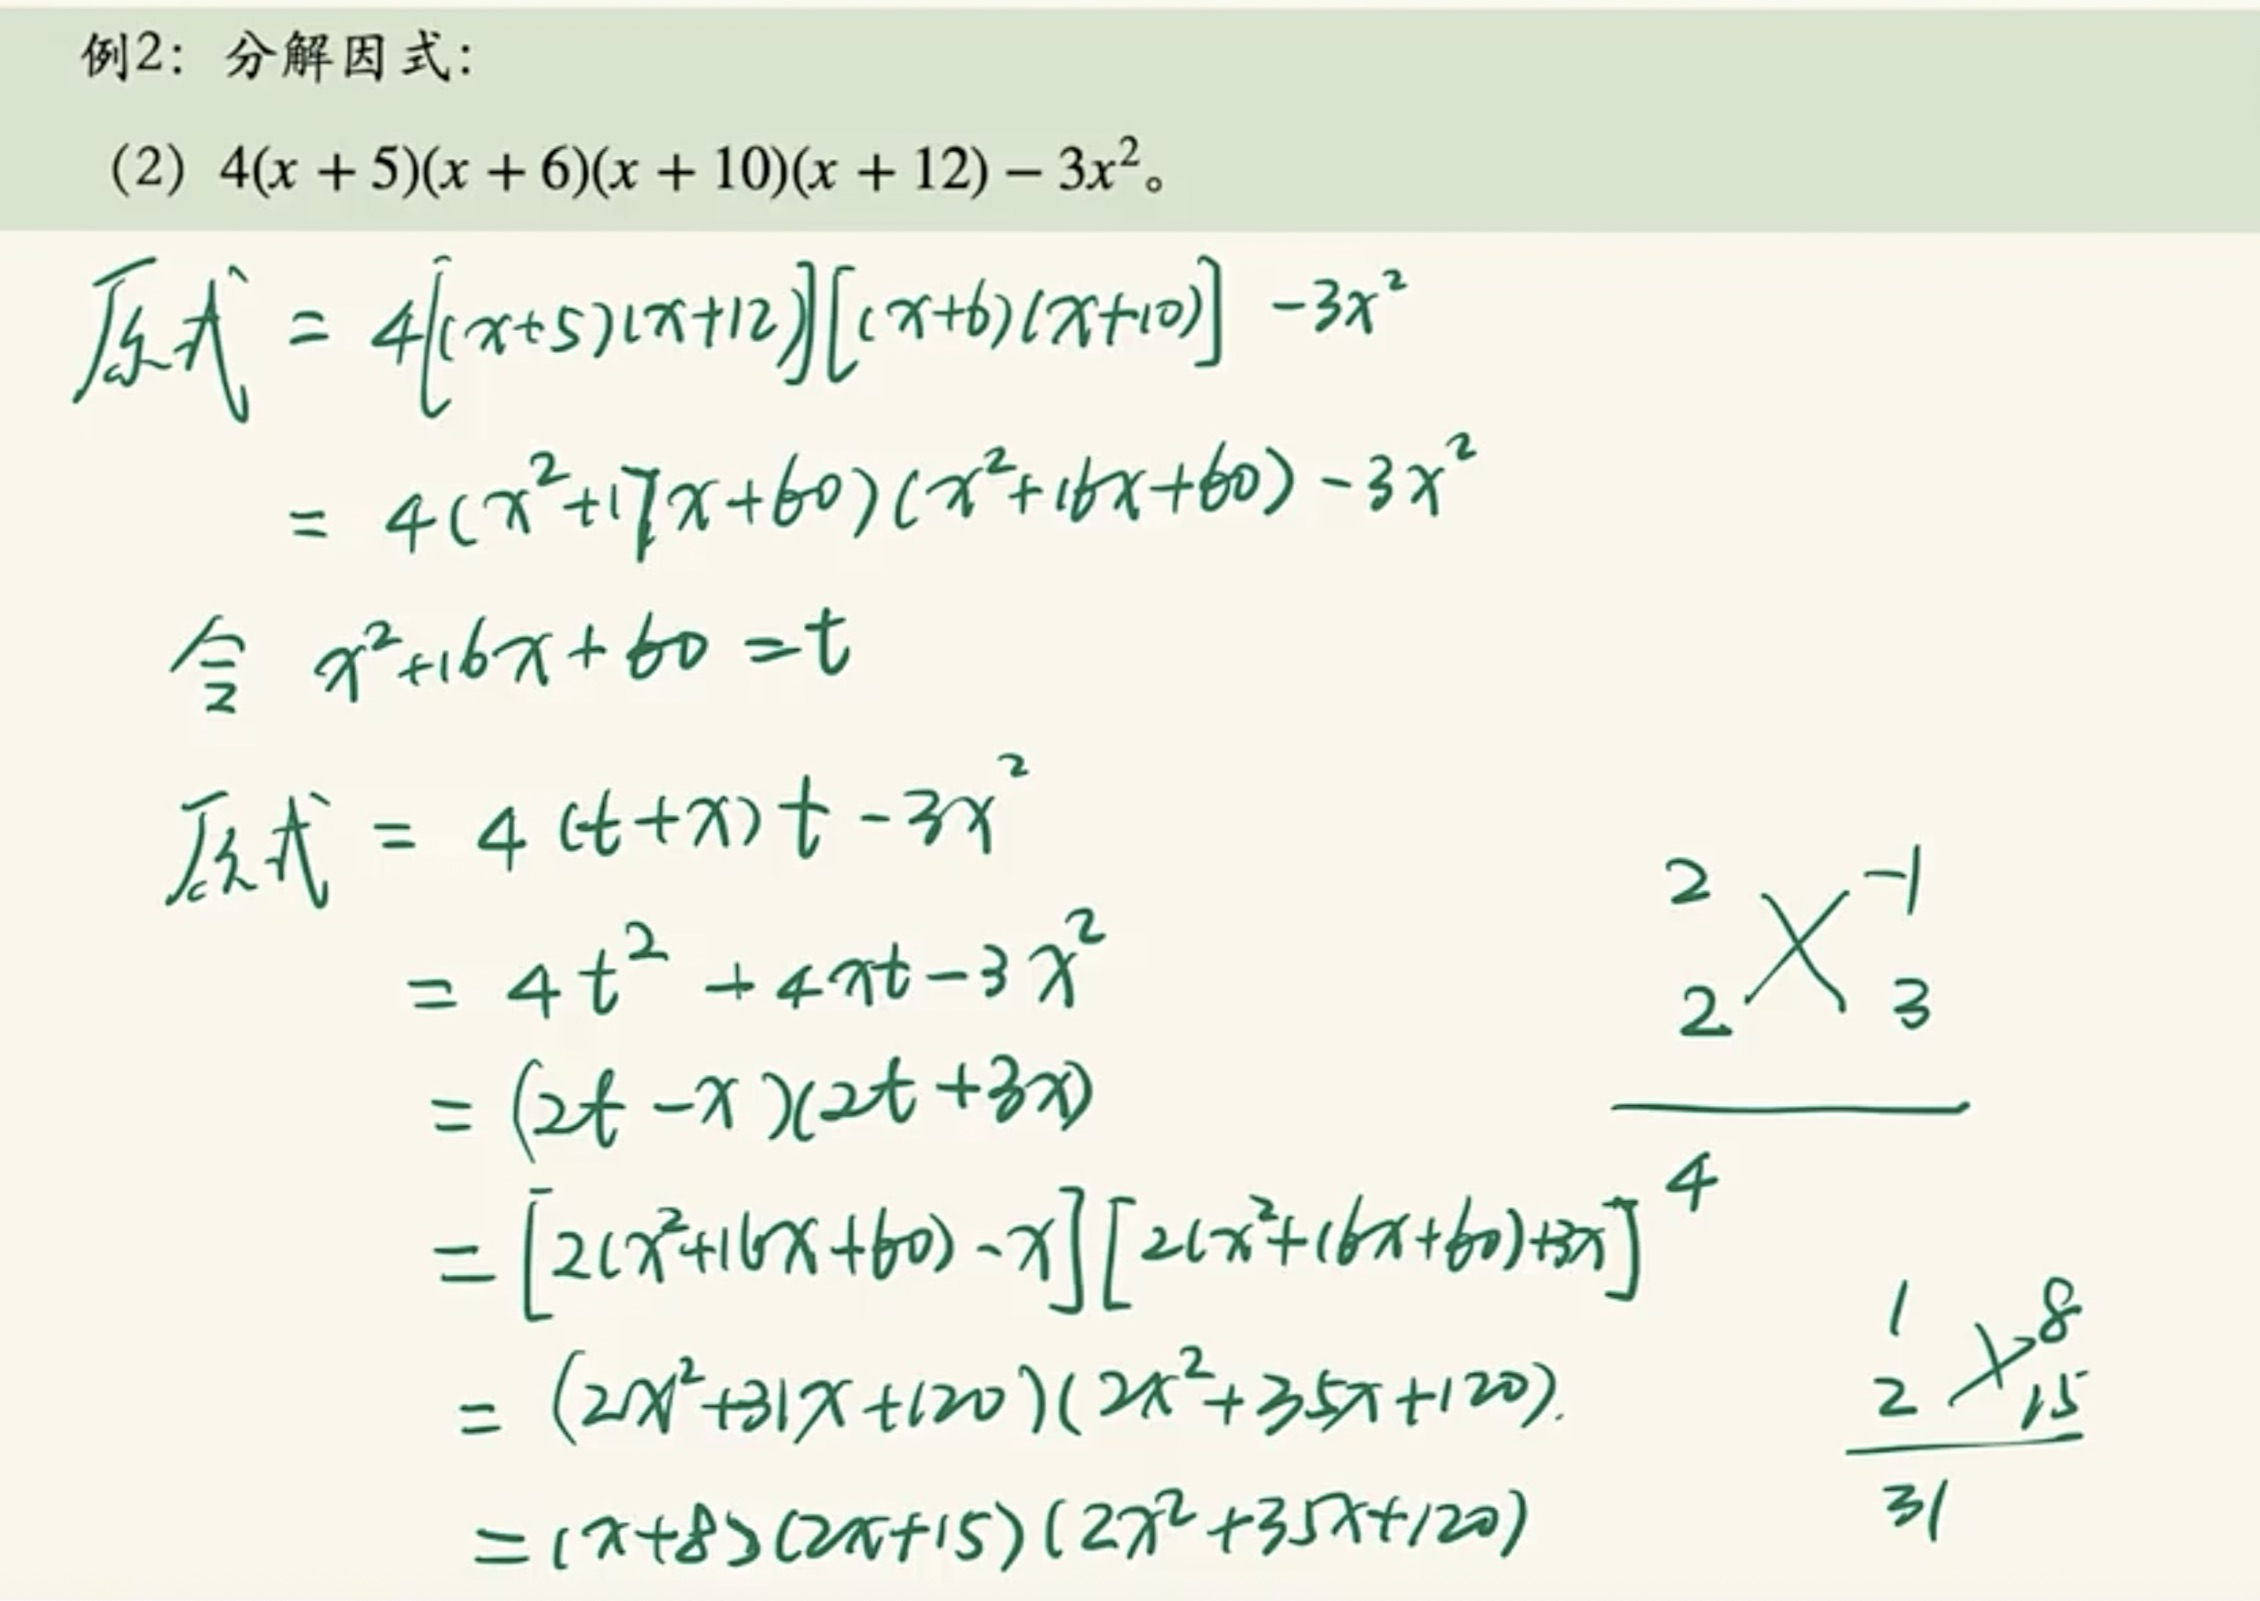 例2：分解因式：
（2）4(x + 5)(x + 6)(x + 10)(x + 12) − 3x²。
原式 = 4[(x+5)(x+12)][(x+6)(x+10)] -3x²
= 4(x²+17x+60)(x²+16x+60)-3x²
令 x²+16x+60=t
原式 = 4(t+x)t-3x²
= 4t²+4xt-3x²
= (2t-x)(2t+3x)
= [2(x²+16x+60)-x][2(x²+16x+60)+3x]
= (2x²+31x+120)(2x²+35x+120).
=(x+8)(2x+15)(2x²+35x+120)
2 -1
2 3
4
1 8
2 15
31